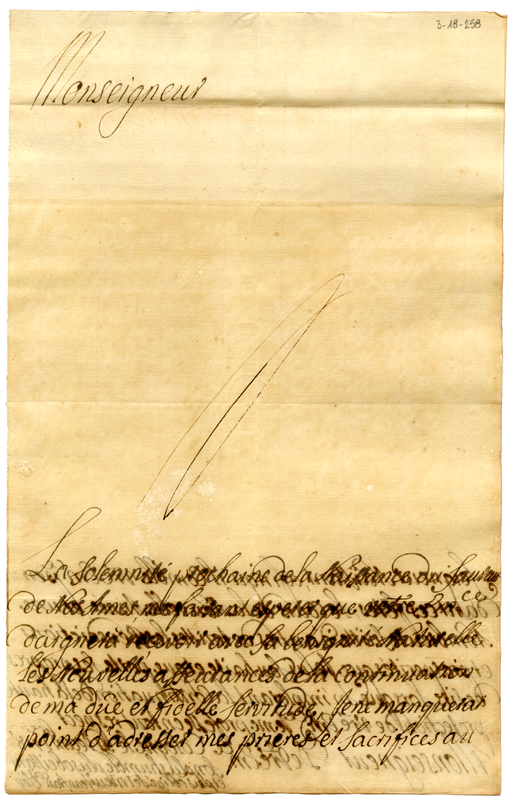 3-18-258
Monseigneur
La Solemnité prochaine de la Naissance du Sauveur
de Nos Ames me faisant esperer que votre Em.ce
daignera recevoir avec sa benignité Naturelle
les Nouvelles asseurances de la continuation
de ma due et fidelle servitude, Je ne manquerai
point d'adresser mes prieres et sacrifices au